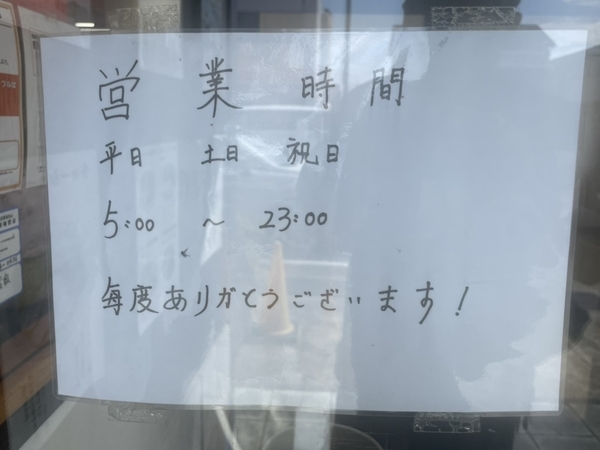 営業時間
平日 土日 祝日
5:00 ～ 23:00
毎度ありがとうございます!